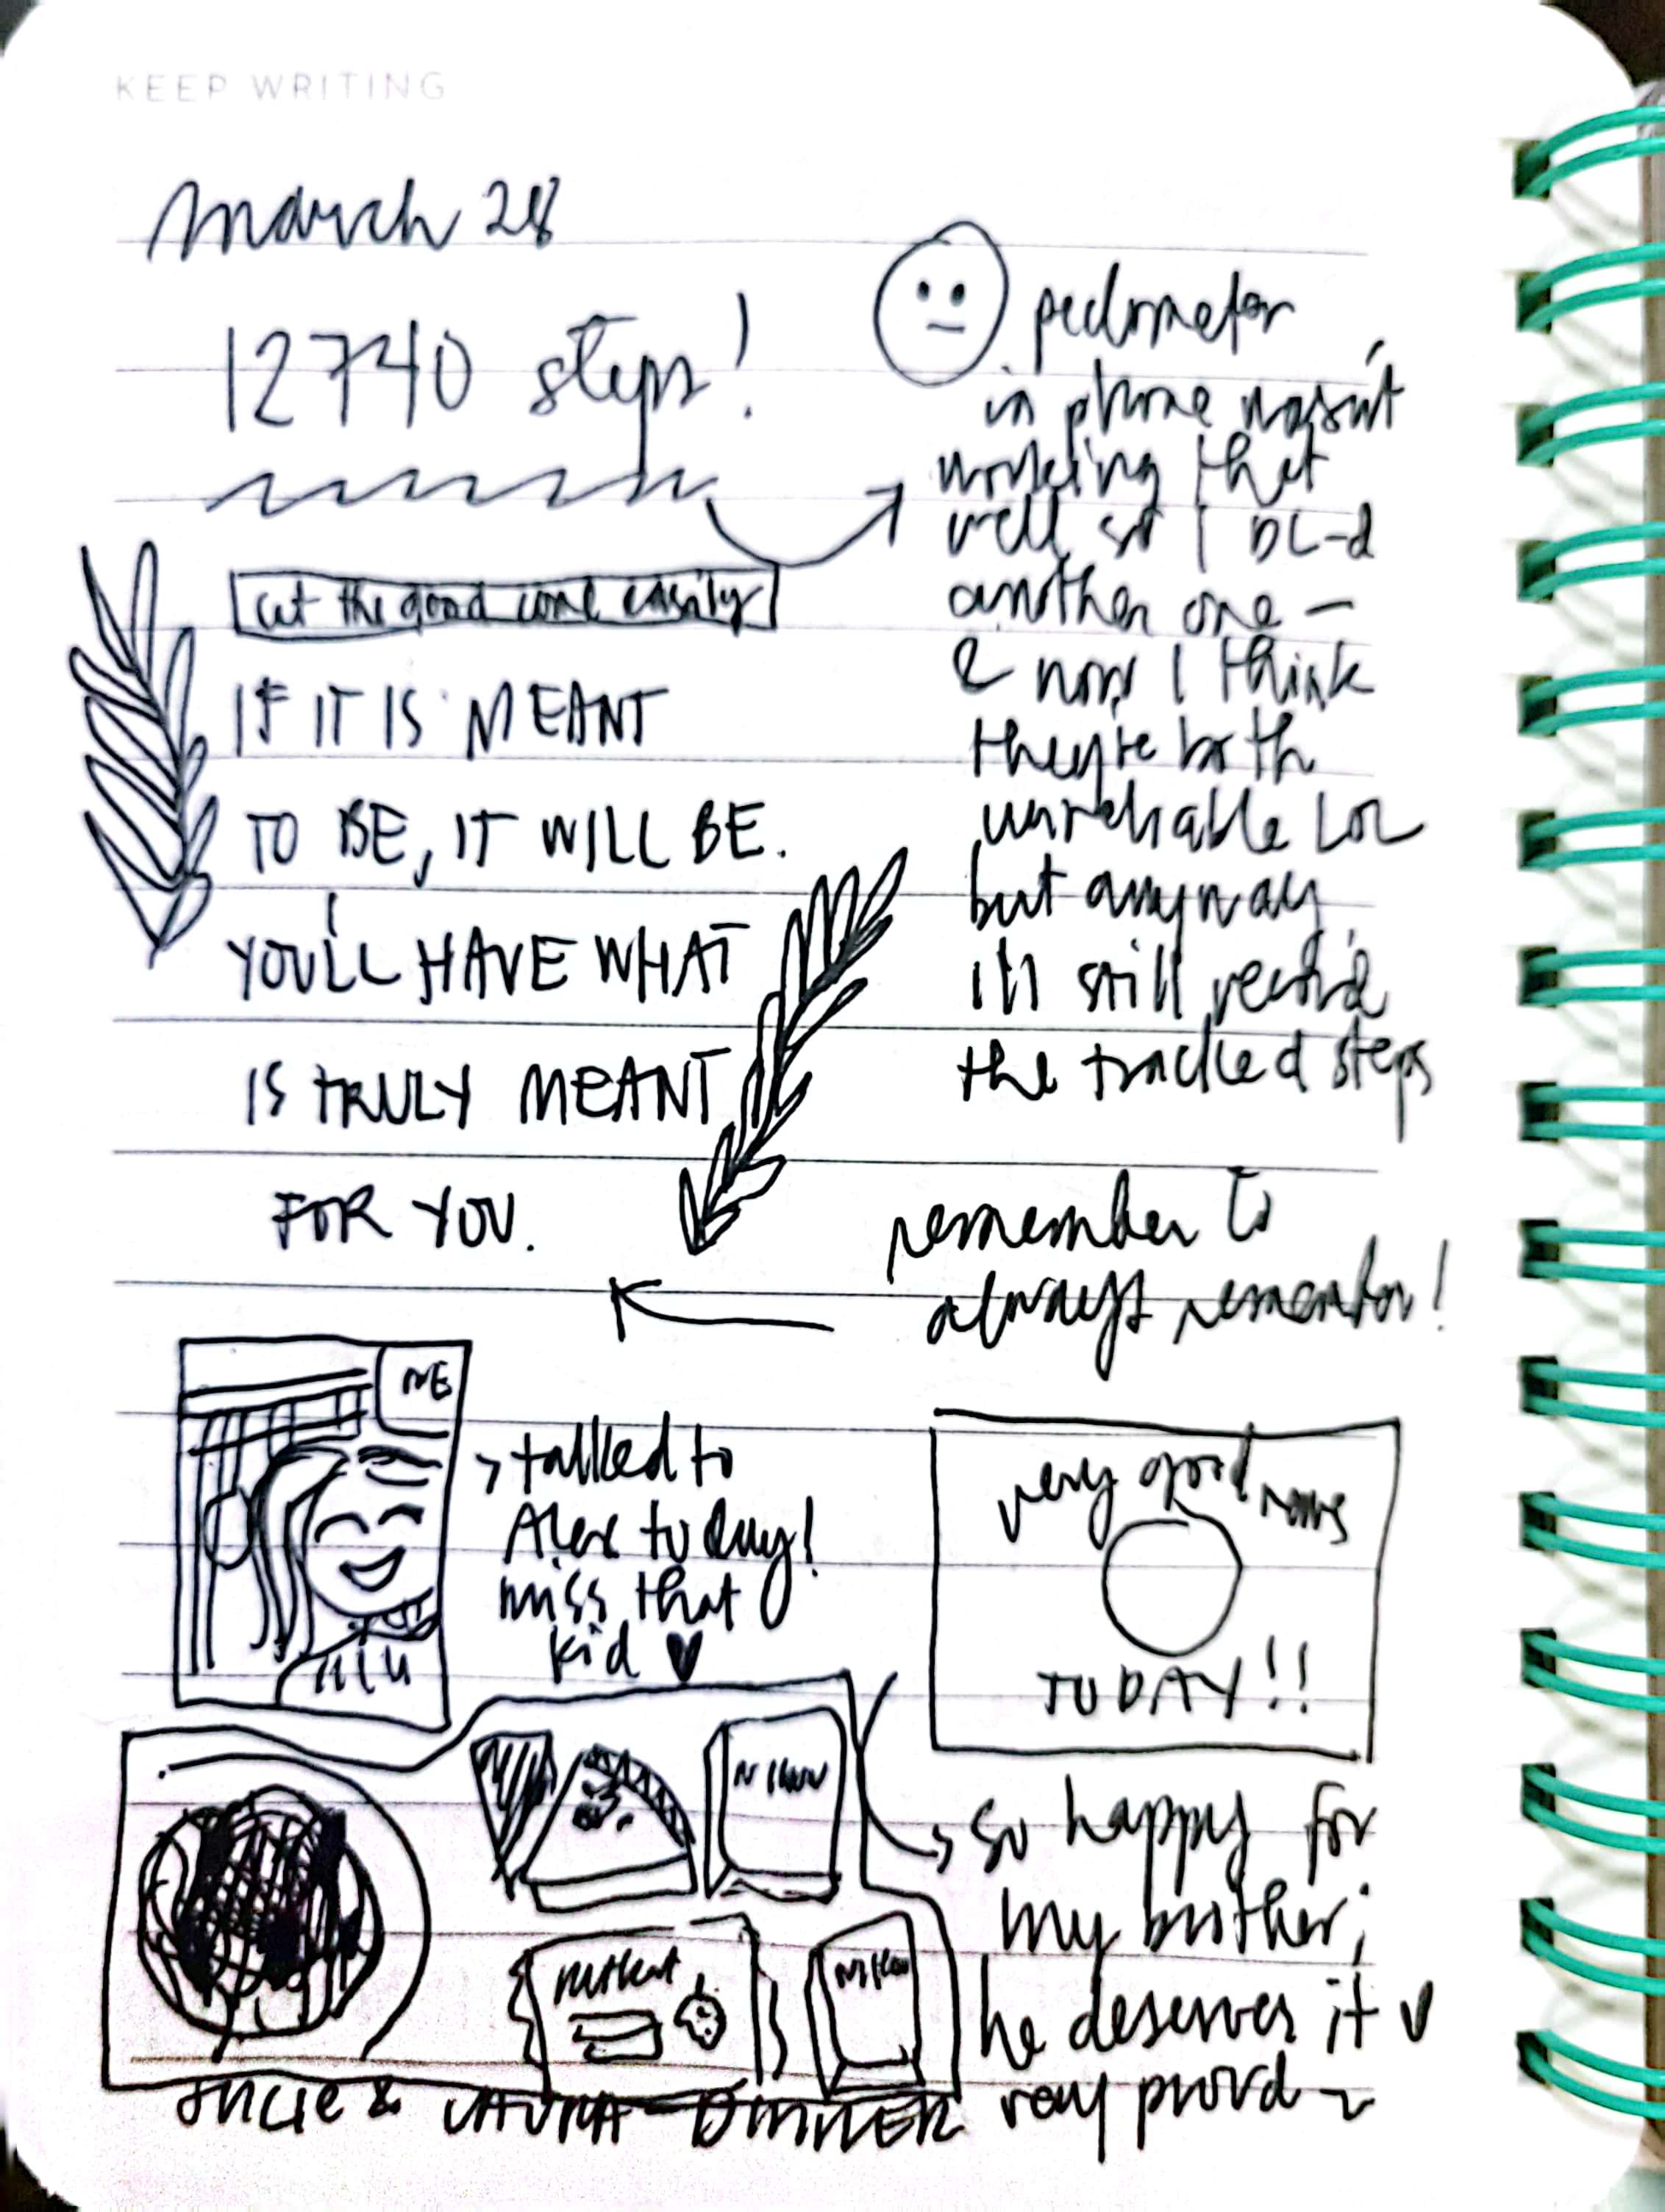 KEEP WRITING
march 28
12740 steps!
pedometer
in phone wasn't
working that
well so I DL-d
another one –
& now I think
they're both
unreliable LOL
but anyway
i'll still record
the tracked steps
Let the good come easily
IF IT IS MEANT
TO BE, IT WILL BE.
YOU'LL HAVE WHAT
IS TRULY MEANT
FOR YOU.
remember to
always remember!
ME
talked to
Alex today!
miss that
kid
very good news
TODAY!!
so happy for
my brother;
he deserves it
very proud
& DINNER